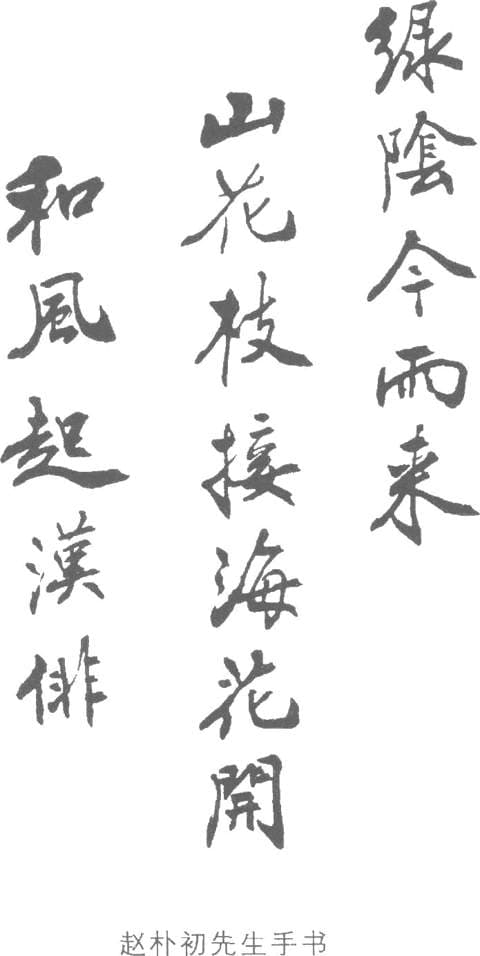 緑陰今雨来
山花枝接海花開
和風起漢俳
赵朴初先生手书